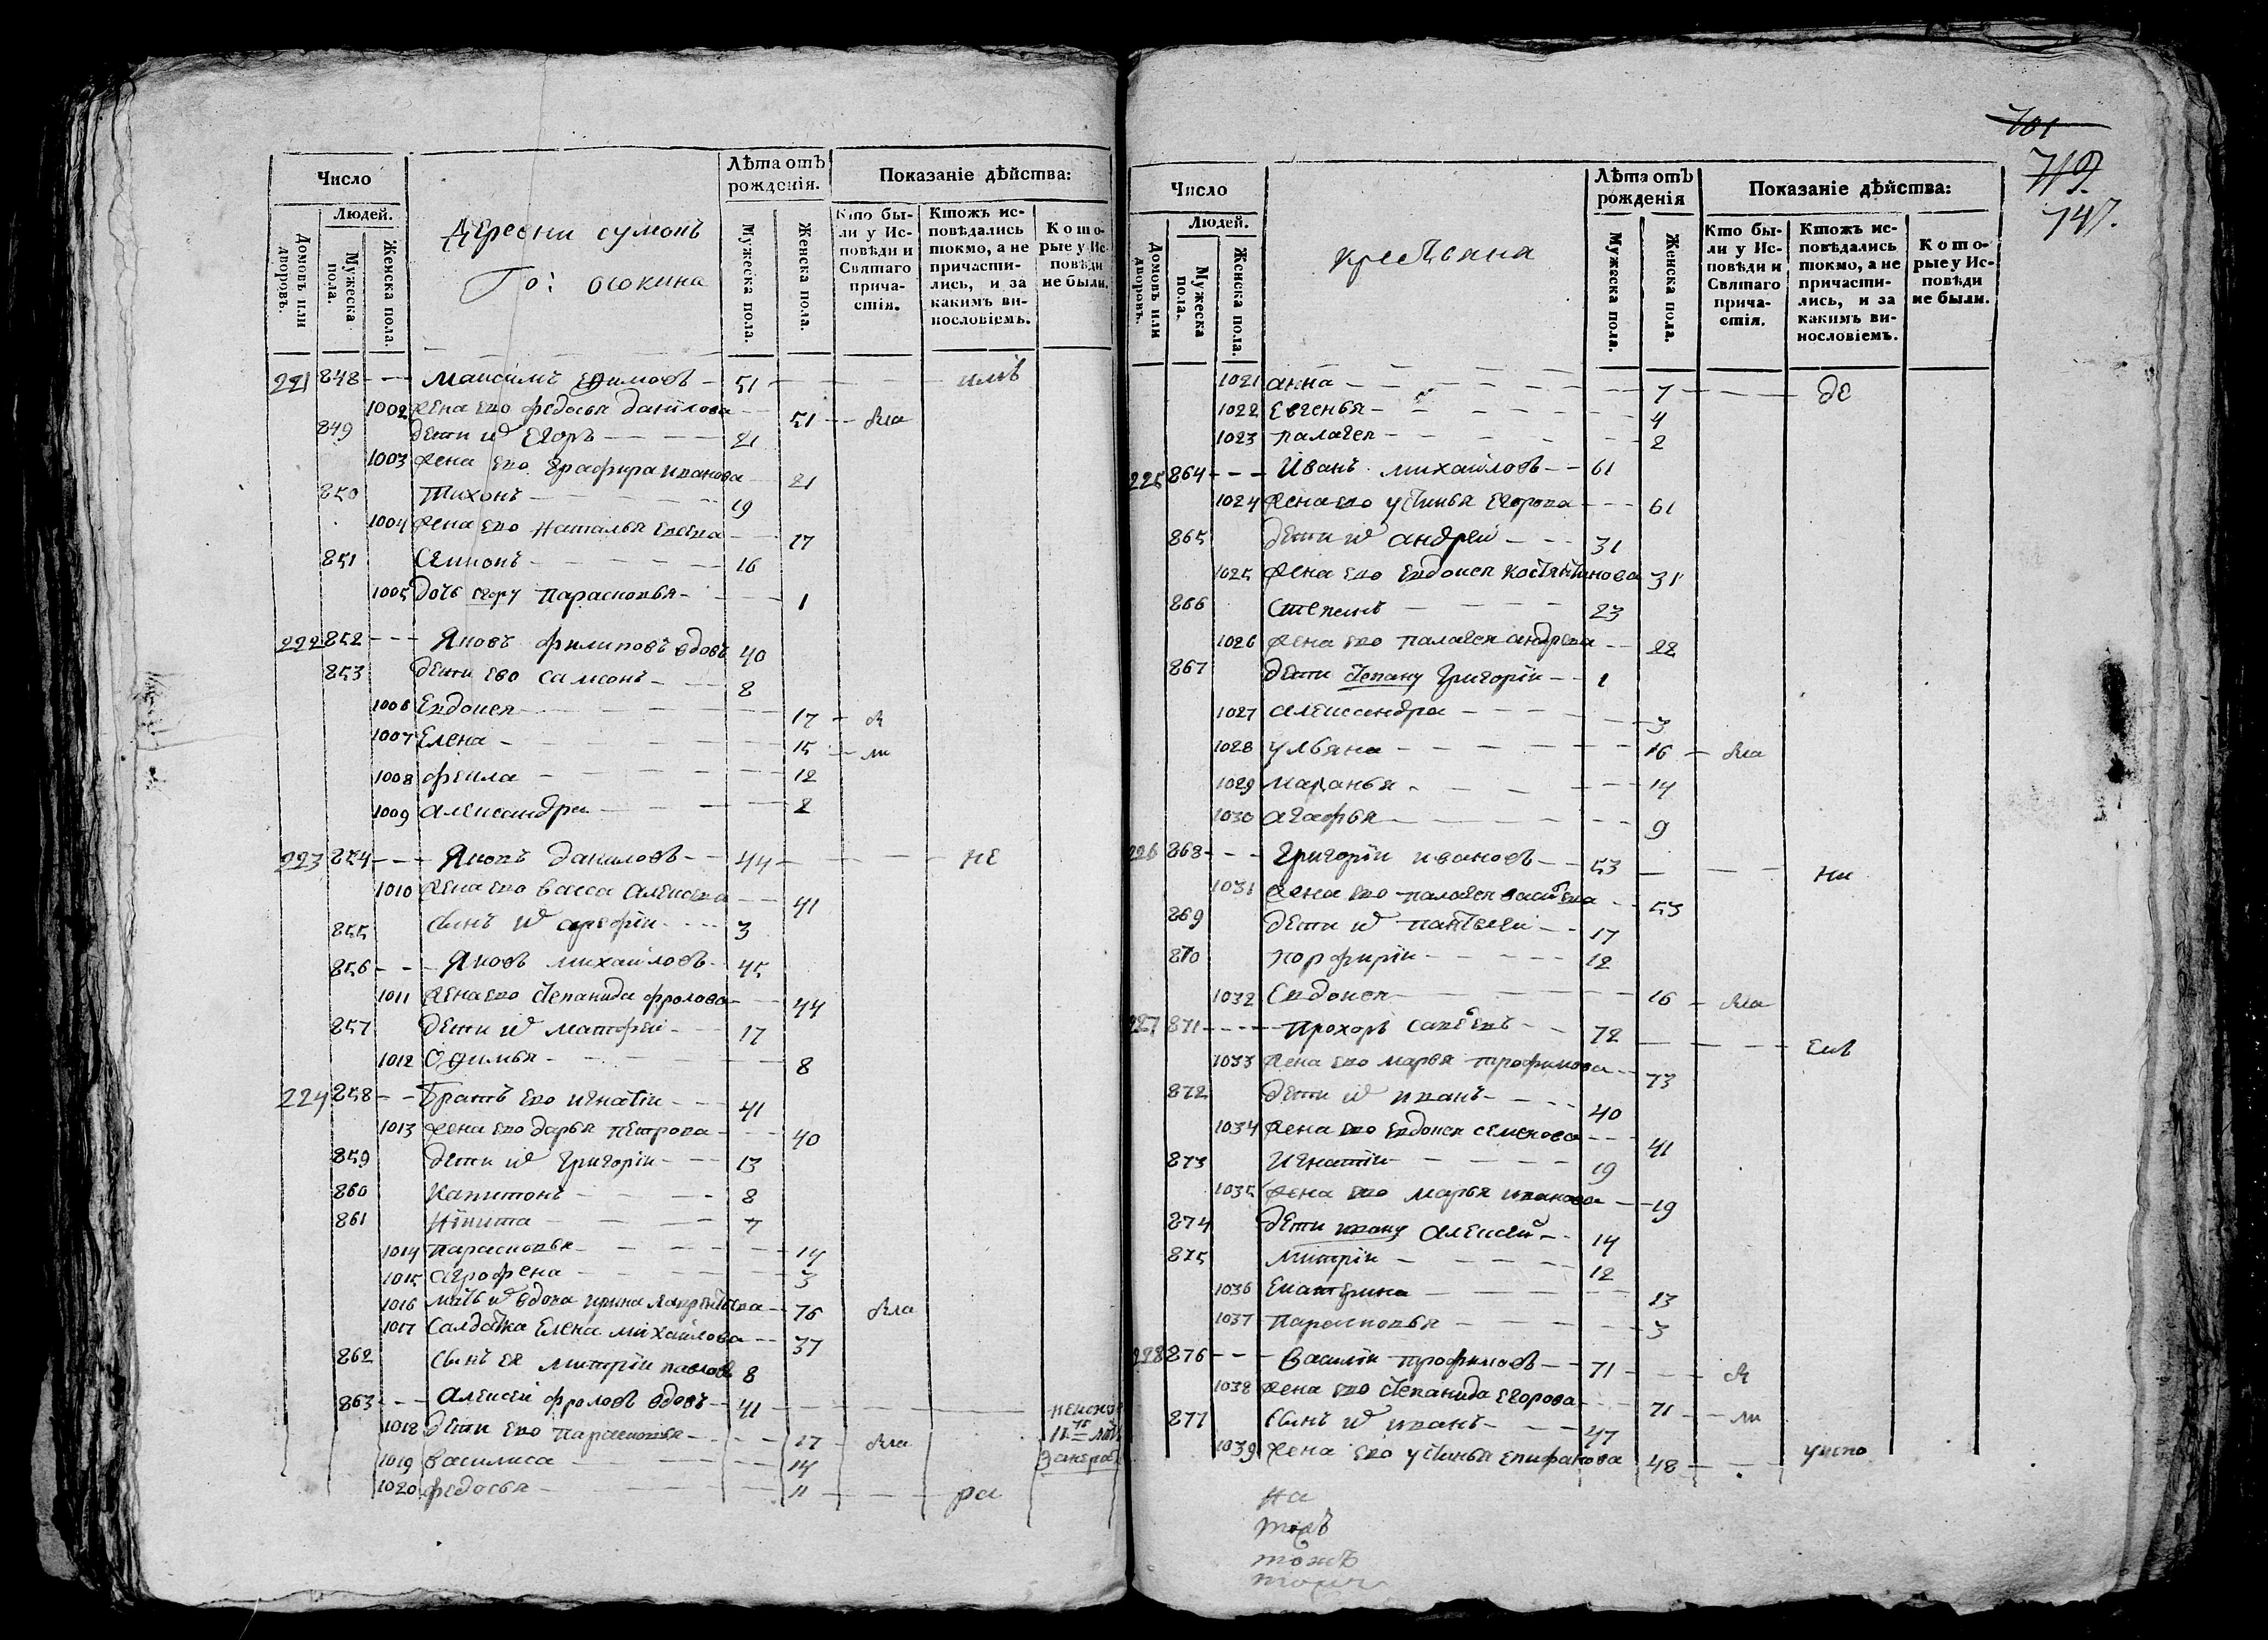 Число
Лѣта отъ рожденія.
Показаніе дѣйства:
Домовъ или дворовъ.
Людей.
Мужеска пола.
Женска пола.
деревни сумокъ
Го: осокина
Мужеска пола.
Женска пола.
Кто были у Исповѣди и Святаго причастія.
Ктожъ исповѣдались токмо, а не причастились, и за какимъ винословіемъ.
Которые у Исповѣди не были.
221 848 - - - Максимъ Ефимовъ - 51
1002 жена ево федосья данилова - - 51
849 дети их Егоръ - - - - 21
1003 жена ево Графира иванова 21
850 Тихонъ - - - - 19
1004 жена ево наталья - - 17
851 Симионъ - - - - 16
1005 дочь егору Парасковья - - - 1
222 852 - - - Яковъ филиповъ вдовъ 40
853 дети ево самсонъ - - 8
1006 Евдокея - - - - 17
1007 Елена - - - - 15
1008 фекла - - - - 12
1009 александра - - - - 2
223 854 - - - Яковъ даниловъ - - 44 - - - не
1010 жена ево васса алексеева - - 41
855 сынъ их арефїи - - - 3
856 - - - Яковъ михаиловъ - 45
1011 жена ево степанида фролова - - 44
857 дети их матфеи - - 17
1012 Офимья - - - - 8
224 858 - - Братъ ево игнатїи - - 41
1013 жена ево дарья петрова - - 40
859 дети их григорїи - - - 13
860 Капитонъ - - - 8
861 Нїкита - - - 7
1014 парасковья - - - - 14
1015 агрофена - - - - 3
1016 мать их вдова ирина лаврентьева - 76
1017 Салдатка Елена михаилова - - 37
862 сынъ ея митрїи павловъ 8
863 - - - алексеи фроловъ вдовъ - 41
1018 дети ево парасковья - - - 17
1019 василиса - - - - 14
1020 федосья - - - - 11 - - - ра
701
719.
747.
Число
Лѣта отъ рожденія
Показаніе дѣйства:
Домовъ или дворовъ.
Людей.
Мужеска пола.
Женска пола.
крестьяна
Мужеска пола.
Женска пола.
Кто были у Исповѣди и Святаго причастія.
Ктожъ исповѣдались токмо, а не причастились, и за какимъ винословіемъ.
Которые у Исповѣди не были.
1021 анна - - - - 7 - - - де
1022 Евгенья - - - - 4
1023 палагея - - - - 2
225 864 - - - Иванъ михаиловъ - - 61
1024 жена ево устинья Егорова - - - 61
865 дети их андреи - - - 31
1025 жена ево Евдокея костянтинова 31
866 степанъ - - - - 23
1026 жена ево палагея андреева - - 22
867 дети степану григорїи - - 1
1027 александра - - - - 3
1028 ульяна - - - - 16
1029 маланья - - - - 14
1030 агафья - - - - 9
226 868 - - - григорїи ивановъ - - 53 - - - ни
1031 жена ево палагея - - 53
869 дети их пантелеи - - 17
870 порфирїи - - - - 12
1032 Евдокея - - - - 16
227 871 - - - прохоръ - - 72
1033 жена ево марья трофимова - - 73
872 дети их иванъ - - - - 40
1034 жена ево евдокея семенова - - - 41
873 Игнатїи - - - - 19
1035 жена ево марья иванова - - 19
874 дети ивану алексеи - - 14
875 митрїи - - - - 12
1036 Екатерина - - - - 13
1037 парасковья - - - - 3
228 876 - - - василїи трофимовъ - - 71
1038 жена ево степанида егорова - - - 71
877 сынъ их иванъ - - - 47
1039 жена ево устинья епифанова 48
на